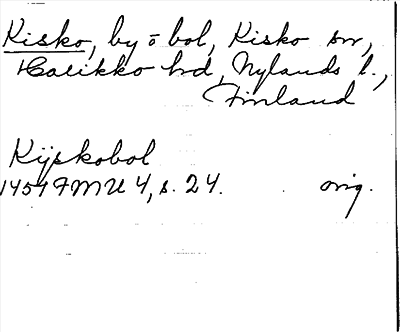 Kisko, by o bol, Kisko sn,
Halikko hd, Nylands l.,
Finland
Kijskobol
1451 FMU 4, s. 24. orig.